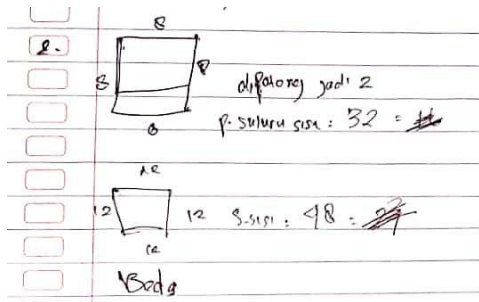 8
2.
8 8
dipotong jadi 2
8
p. suluru sisi : 32 =
12
12 12 S-sisi : 48 =
12
Beda